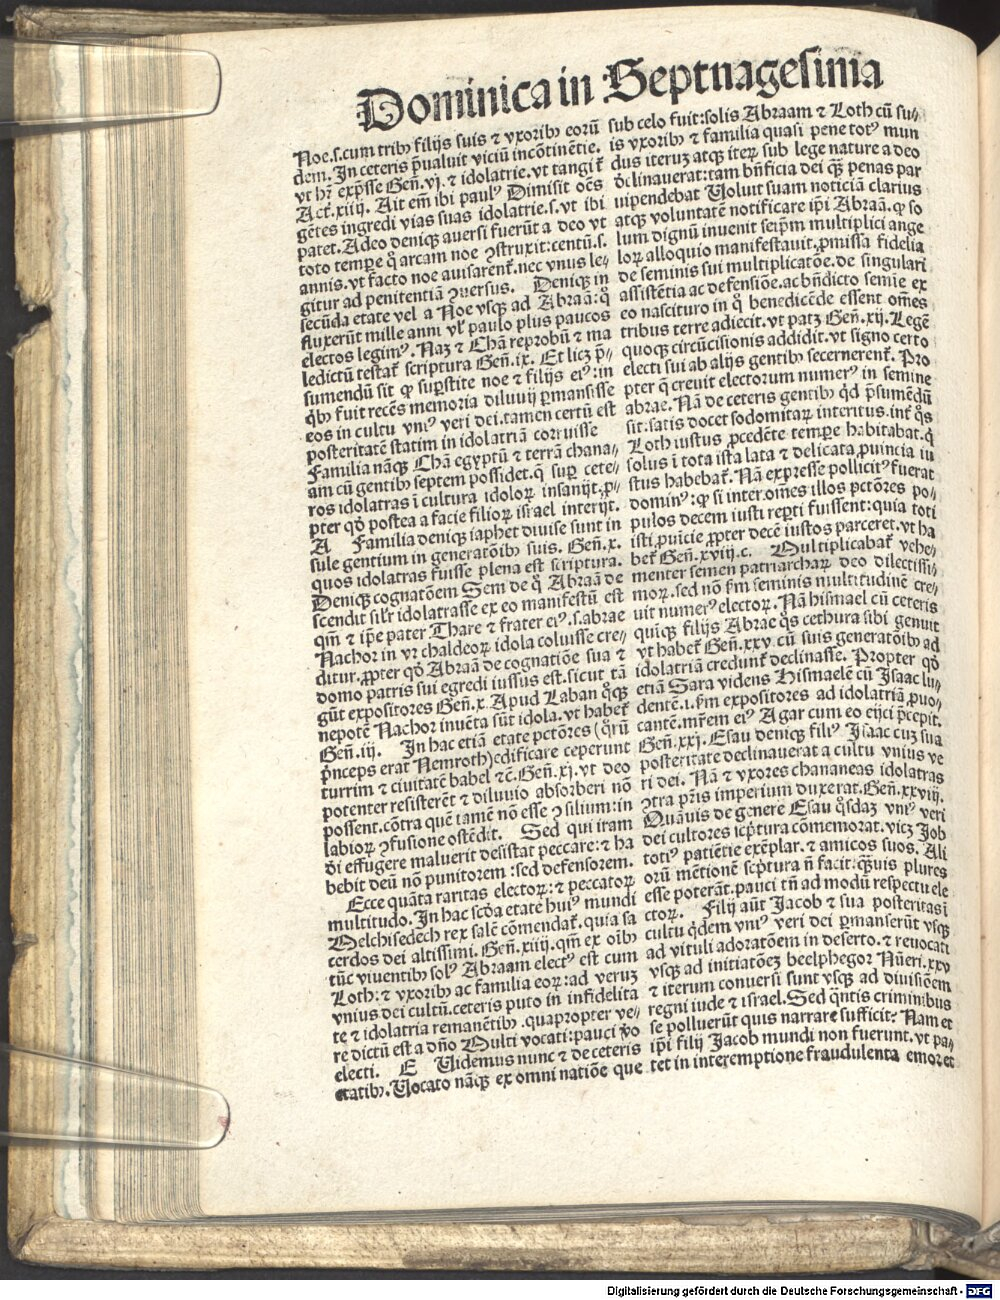 Dominica in Septuagesima
Noe.s.cum tribꝰ filijs suis ⁊ vxoribꝰ eorū
dem. In ceteris p̄ualuit viciū incōtinētie.
vt hr̄ exp̄sse Geñ.vj. ⁊ idolatrie. vt tangit̄
Act̄.xiiij. Ait em̄ ibi paulꝰ Dimisit oēs
gētes ingredi vias suas idolatrie.s.vt ibi
patet. Adeo deniqꝫ auersi fuerūt a deo vt
toto tempe q̄ arcam noe ꝯstruxit: centū.s.
annis. vt facto noe auisarent̄. nec vnus le⸗
gitur ad penitentiā ꝯuersus. Deniqꝫ in
secūda etate vel a Noe vsqꝫ ad Abraā: q̊
fluxerūt mille anni vl̓ paulo plus paucos
electos legimꝰ. Naꝫ ⁊ Chā reprobū ⁊ ma
ledictū testat̄ scriptura Geñ.ix. Et licꝫ p̄⸗
sumendū sit ꝙ sup̄stite noe ⁊ filijs eiꝰ: in
qͥbꝰ fuit recēs memoria diluuij ꝑmansisse
eos in cultu vniꝰ veri dei. tamen certū est
posteritatē statim in idolatriā corruisse
Familia nāqꝫ Chā egyptū ⁊ terrā chana⸗
am cū gentibꝰ septem possidet. q̄ suꝑ cete⸗
ros idolatras ī cultura idoloꝝ insanijt. ꝓ⸗
pter qd̓ postea a facie filioꝝ israel interijt.
A Familia deniqꝫ iaphet diuise sunt in
sule gentium in generatōibꝰ suis. Geñ.x.
quos idolatras fuisse plena est scriptura.
Deniqꝫ cognatōem Sem de q̊ Abraā de
scendit sil̓r idolatrasse ex eo manifestū est
qm̄ ⁊ ip̄e pater Thare ⁊ frater eiꝰ.s.abrae
Nachor in vr chaldeoꝝ idola coluisse cre⸗
ditur. ꝓpter qd̓ Abraā de cognatiōe sua ⁊
domo patris sui egredi iussus est. sicut tā
gūt expositores Geñ.x. Apud Laban q̊qꝫ
nepotē Nachor inuēta sūt idola. vt habet̄
Geñ.iij. In hac etiā etate pctōres (q̊rū
p̄nceps erat Nemroth) edificare ceperunt
turrim ⁊ ciuitatē babel ⁊c̄. Geñ.xj. vt deo
potenter resisterēt ⁊ diluuio absorberi nō
possent. cōtra quē tamē nō esse ꝯsilium: in
labioꝝ ꝯfusione ostēdit. Sed qui iram
dī effugere maluerit desistat peccare: ⁊ ha
bebit deū nō punitorem: sed defensorem.
Ecce quāta raritas electoꝝ: ⁊ peccatoꝝ
multitudo. In hac scd̓a etate huiꝰ mundi
Melchisedech rex salē cōmendat̄. quia sa
cerdos dei altissimi. Geñ.xiiij. qm̄ ex oībꝰ
tūc viuentibꝰ solꝰ Abraam electꝰ est cum
Loth: ⁊ vxoribꝰ ac familia eoꝝ: ad veruꝫ
vnius dei cultū. ceteris puto in infidelita
te ⁊ idolatria remanētibꝰ. quapropter ve⸗
re dictū est a dño Multi vocati: pauci v̊o
electi. E Videmus nunc ⁊ de ceteris
etatibꝰ. Vocato nāqꝫ ex omni natiōe que
sub celo fuit: solis Abraam ⁊ Loth cū su⸗
is vxoribꝰ ⁊ familia quasi pene totꝰ mun
dus iteruꝫ atqꝫ iteꝝ sub lege nature a deo
d̓clinauerat: tam bñficia dei qꝫ penas par
uipendebat Voluit suam noticiā clarius
atqꝫ voluntatē notificare ip̄i Abraā. ꝙ so
lum dignū inuenit seip̄m multiplici ange
loꝝ alloquio manifestauit. ꝓmissa fidelia
de seminis sui multiplicatōe. de singulari
assistētia ac defensiōe. ac bñdicto semīe ex
eo nascituro in q̊ benedicēde essent om̄es
tribus terre adiecit. vt patꝫ Geñ.xij. Legē
quoqꝫ circūcisionis addidit. vt signo certo
electi sui ab alijs gentibꝰ secernerent̄. Pro
pter q̄ creuit electorum numerꝰ in semine
abrae. Nā de ceteris gentibꝰ qͥd p̄sumēdū
sit: satis docet sodomitaꝝ interitus. int̄ q̊s
Loth iustus ꝓcedēte tempe habitabat. q̇
solus ī tota ista lata ⁊ delicata ꝓuincia iu
stus habebat̄. Nā expresse pollicitꝰ fuerat
dominꝰ: ꝙ si inter om̄es illos pctōres po⸗
pulos decem iusti reꝑti fuissent: quia toti
isti ꝓuīcie ꝓpter decē iustos parceret. vt ha
bet̄ Geñ.xviij.c. Multiplicabat̄ vehe⸗
menter semen patriarchaꝝ deo dilectissi⸗
moꝝ. sed nō s̄m seminis multitudinē cre⸗
uit numerꝰ electoꝝ. Nā hismael cū ceteris
quiqꝫ filijs Abrae q̊s cethura sibi genuit
vt habet̄ Geñ.xxv. cū suis generatōibꝰ ad
idolatriā credunt̄ declinasse. Propter qd̓
etiā Sara videns Hismaelē cū Isaac lu⸗
dentē.i. s̄m expositores ad idolatriā ꝓuo⸗
cantē. mr̄em eiꝰ Agar cum eo eijci p̄cepit.
Geñ.xxj. Esau deniqꝫ filiꝰ Isaac cuꝫ sua
posteritate declinauerat a cultu vnius ve
ri dei. Nā ⁊ vxores chananeas idolatras
ꝯtra pr̄is imperium duxerat. Geñ.xxviij.
Quāuis de genere Esau q̊sdaꝫ vniꝰ veri
dei cultores scp̄tura cōmemorat. vicꝫ Job
totiꝰ patiētie exēplar. ⁊ amicos suos. Ali
orū mētionē scp̄tura ñ facit: qꝫuis plures
esse poterāt. pauci tñ ad modū respectu ele
ctoꝝ. Filij aūt Jacob ⁊ sua posteritas ī
cultu qͥdem vniꝰ veri dei ꝑmanserūt vsqꝫ
ad vituli adoratōem in deserto. ⁊ reuocati
vsqꝫ ad initiatōeꝫ beelphegor Nūeri.xxv
⁊ iterum conuersi sunt vsqꝫ ad diuisiōem
regni iude ⁊ israel. Sed qͣntis criminibus
se polluerūt quis narrare sufficit? Nam et
ip̄i filij Jacob mundi non fuerunt. vt pa⸗
tet in interemptione fraudulenta emor et
Digitalisierung gefördert durch die Deutsche Forschungsgemeinschaft - DFG